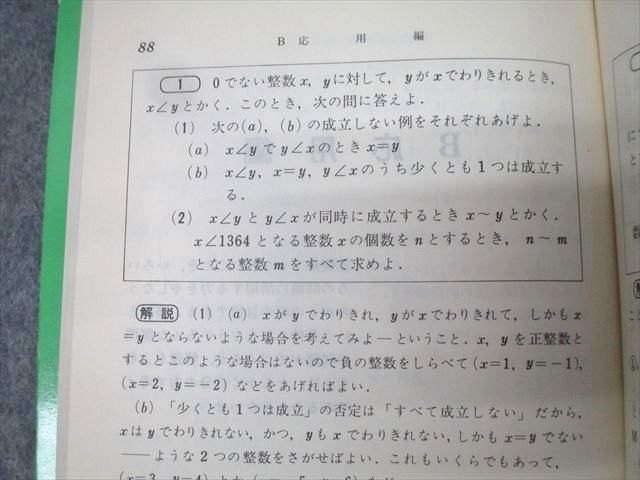 88
B 応用編
1 0でない整数x, yに対して, yがxでわりきれるとき,
x∠yとかく. このとき, 次の問に答えよ.
(1) 次の(a), (b)の成立しない例をそれぞれあげよ.
(a) x∠yでy∠xのときx=y
(b) x∠y, x=y, y∠xのうち少くとも1つは成立す
る.
(2) x∠yとy∠xが同時に成立するときx〜yとかく.
x∠1364となる整数xの個数をnとするとき, n〜m
となる整数mをすべて求めよ.
解説 (1) (a) xがyでわりきれ, yがxでわりきれて, しかもx
=yとならないような場合を考えてみよ—ということ. x, yを正整数と
するとこのような場合はないので負の整数をしらべて(x=1, y=−1),
(x=2, y=−2)などをあげればよい.
(b) 「少くとも1つは成立」の否定は「すべて成立しない」だから,
xはyでわりきれない, かつ, yもxでわりきれない, しかもx=yでない
——ような2つの整数をさがせばよい. これもいくらでもあって,
(x=3, y=4)